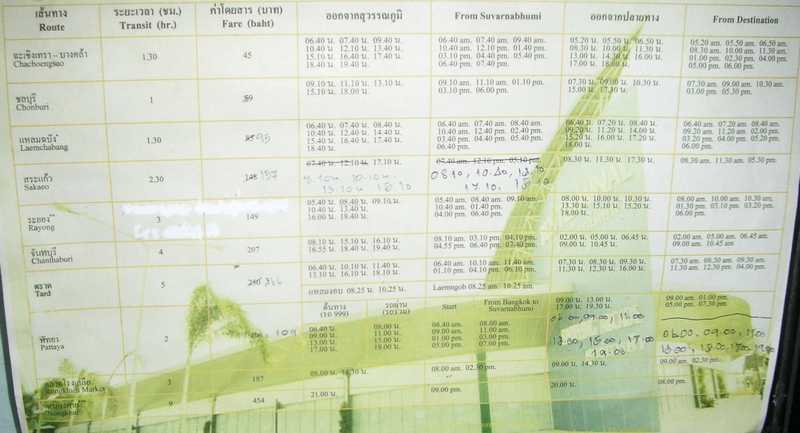 เส้นทาง ระยะเวลา (ชม.) ค่าโดยสาร (บาท) ออกจากสุวรรณภูมิ From Suvarnabhumi ออกจากปลายทาง From Destination
Route Transit (hr.) Fare (baht)
ฉะเชิงเทรา – บางคล้า
Chachoengsao
1.30 45
06.40 น. 07.40 น. 09.40 น.
10.40 น. 12.10 น. 13.40 น.
15.10 น. 16.40 น. 17.40 น.
18.40 น. 19.40 น.
06.40 am. 07.40 am. 09.40 am.
10.40 am. 12.10 pm. 01.40 pm.
03.10 pm. 04.40 pm. 05.40 pm.
06.40 pm. 07.40 pm.
05.20 น. 05.50 น. 06.50 น.
08.30 น. 10.00 น. 11.30 น.
13.00 น. 14.30 น. 16.00 น.
17.00 น. 18.00 น.
05.20 am. 05.50 am. 06.50 am.
08.30 am. 10.00 am. 11.30 am.
01.00 pm. 02.30 pm. 04.00 pm.
05.00 pm. 06.00 pm.
ชลบุรี
Chonburi
1
09.10 น. 11.10 น. 13.10 น.
15.10 น. 18.00 น.
09.10 am. 11.10 am. 01.10 pm.
03.10 pm. 06.00 pm.
07.30 น. 09.00 น. 10.30 น.
15.00 น. 17.30 น.
07.30 am. 09.00 am. 10.30 am.
03.00 pm. 05.30 pm.
แหลมฉบัง
Laemchabang
1.30 95
06.40 น. 07.40 น. 08.40 น.
10.40 น. 12.40 น. 14.40 น.
15.40 น. 16.40 น. 17.40 น.
18.40 น.
06.40 am. 07.40 am. 08.40 am.
10.40 am. 12.40 pm. 02.40 pm.
03.40 pm. 04.40 pm. 05.40 pm.
06.40 pm.
06.40 น. 07.20 น. 08.40 น.
09.20 น. 11.20 น. 14.00 น.
15.20 น. 16.00 น. 17.20 น.
18.00 น.
06.40 am. 07.20 am. 08.40 am.
09.20 am. 11.20 am. 02.00 pm.
03.20 pm. 04.00 pm. 05.20 pm.
06.00 pm.
สระแก้ว
Sakaeo
2.30 148 157
07.40 น. 12.10 น. 17.10 น.
07.40 am. 12.10 pm. 05.10 pm.
08.30 น. 11.30 น. 17.30 น.
08.30 am. 11.30 am. 05.30 pm.
ระยอง
Rayong
3 149
05.40 น. 08.40 น. 09.10 น.
10.40 น. 13.40 น.
16.00 น. 18.40 น.
05.40 am. 08.40 am. 09.10 am.
10.40 am. 01.40 pm.
04.00 pm. 06.40 pm.
08.00 น. 10.00 น. 10.30 น.
13.30 น. 15.10 น. 15.20 น.
18.00 น.
08.00 am. 10.00 am. 10.30 am.
01.30 pm. 03.10 pm. 03.20 pm.
06.00 pm.
จันทบุรี
Chanthaburi
4 207
08.10 น. 15.10 น. 16.10 น.
16.55 น. 18.40 น. 19.40 น.
08.10 am. 03.10 pm. 04.10 pm.
04.55 pm. 06.40 pm. 07.40 pm.
02.00 น. 05.00 น. 06.45 น.
09.00 น. 10.45 น.
02.00 am. 05.00 am. 06.45 am.
09.00 am. 10.45 am
ตราด
Tard
5
06.40 น. 10.10 น. 11.40 น.
13.10 น. 16.10 น. 18.10 น.
แหลมงอบ 08.25 น. 10.25 น.
06.40 am. 10.10 am. 11.40 am.
01.10 pm. 04.10 pm. 06.10 pm.
Laemngob 08.25 am. 10.25 am.
07.30 น. 08.30 น. 09.30 น.
11.30 น. 12.30 น. 16.00 น.
07.30 am. 08.30 am. 09.30 am.
11.30 am. 12.30 pm. 04.00 pm.
พัทยา
Pattaya
2 109
ต้นทาง
06.40 น.
09.00 น.
13.00 น.
17.00 น.
08.00 น.
11.00 น.
15.00 น.
19.00 น.
Start
06.40 am.
09.00 am.
01.00 pm.
05.00 pm.
From Bangkok to
Suvarnabhumi
08.00 am.
11.00 am.
03.00 pm.
07.00 pm.
09.00 น. 13.00 น.
17.00 น. 19.30 น.
09.00 am. 01.00 pm.
05.00 pm. 07.30 pm.
3 187
08.00 am. 02.30 pm.
09.00 น. 14.30 น.
09.00 am. 02.30 pm.
9 454
21.00 น.
09.00 pm.
20.00 น.
08.00 pm.